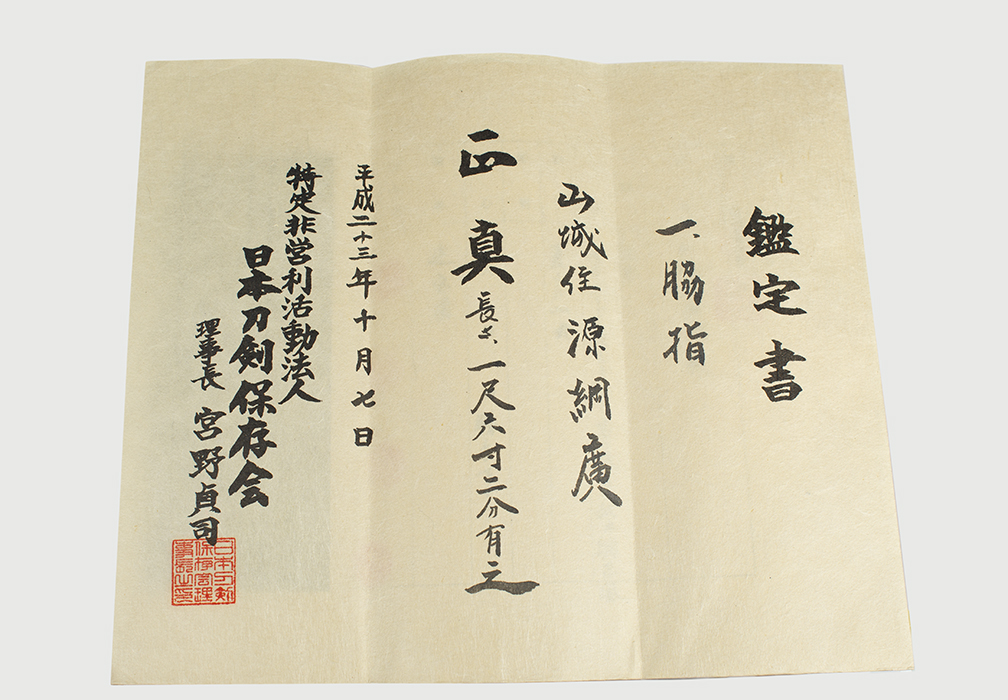 鑑定書
一、脇指
山城住源綱廣
正真
長さ、一尺六寸二分有之
平成二十三年十月七日
特定非営利活動法人
日本刀剣保存会
理事長 宮野貞司
日本刀剣
保存会理
事長之印